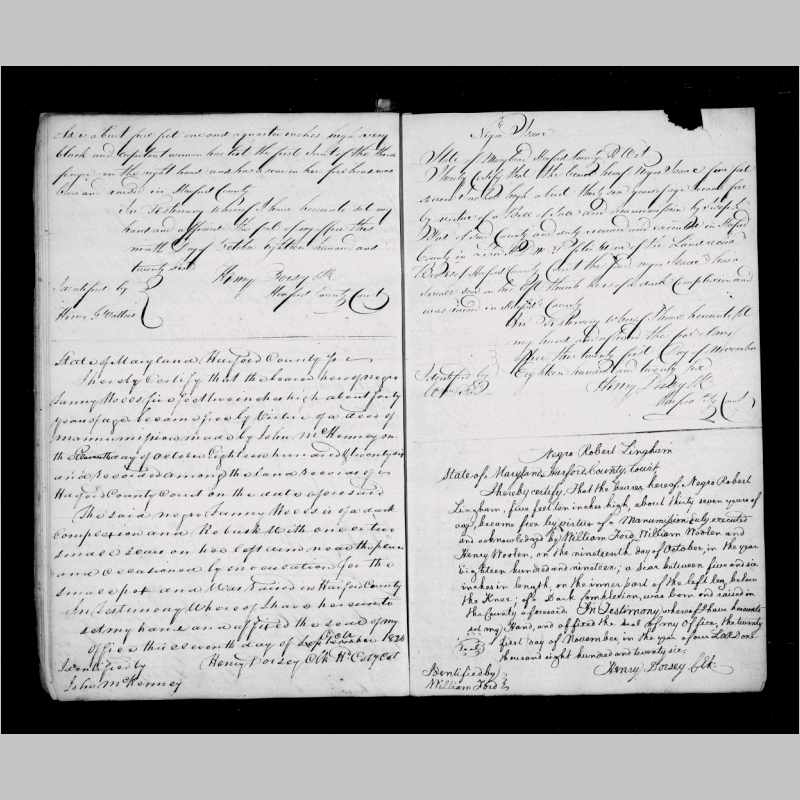 She is about five feet one and a quarter inches high very
black and corpulent woman has lost the first Joint of the
finger on the right hand and has a scar on her forehead was
born and raised in Harford County
In Testimony whereof I have hereunto set my
hand and affixed the seal of my office this
day of October eighteen hundred and
twenty six
Henry Dorsey Clk
Harford County Court
Identified by
Henry G Watters
State of Maryland Harford County Sc
I hereby Certify that the bearer hereof negro
Fanny five feet seven inches high about forty
years of age became free by Virtue of a deed of
manumission made by John McKenney on
the Eleventh day of October Eighteen hundred & twenty six
and Recorded among the Land Records of
Harford County Court on the date aforesaid
The said negro Fanny is of a dark
Complexion and Robust With one or two
small scars on her left arm near the place
and occationed by enoculation for the
small pox and Was raised in Harford County
In Testimony Whereof I have hereunto
set my hand and affixed the seal of my
Office this eleventh day of October 1826
Henry Dorsey Clk Hd Coty Cot
Identified by
John McKenney
Negro Isaac
State of Maryland Harford County Court
I hereby certify that the bearer hereof Negro Isaac five feet
seven inches high about thirty years of age became free
by virtue of a Bill of Sale and manumission by Joseph
of said County and duly executed and recorded in Harford
County in one of the Land record
Books of Harford County Court the said negro Isaac has a
scar on his left thumb he is of a dark Complexion and
was raised in Harford County
In Testimony whereof I have hereunto set
my hand and affixed the seal of my
office this twenty first day of November
Eighteen hundred and twenty six
Henry Dorsey Clk
Harford Co Court
Identified by
Negro Robert Lingham
State of Maryland, Harford County, Court
I hereby certify, That the bearer hereof Negro Robert
Lingham, five feet ten inches high, about thirty seven years of
age, became free by virtue of a Manumission duly executed
and acknowledged by William Ford, William Woolen and
Henry Woolen, on the nineteenth day of October, in the year
Eighteen hundred and nineteen; a scar between five and six
inches in length, on the inner part of the left leg, below
the Knee; of a Dark Complexion, was born and raised in
the County aforesaid. In Testimony whereof I have hereunto
set my Hand, and affixed the seal of my Office, the twenty
first day of November in the year of our Lord one
thousand eight hundred and twenty six.
Henry Dorsey Clk.
Identified by
William Ford